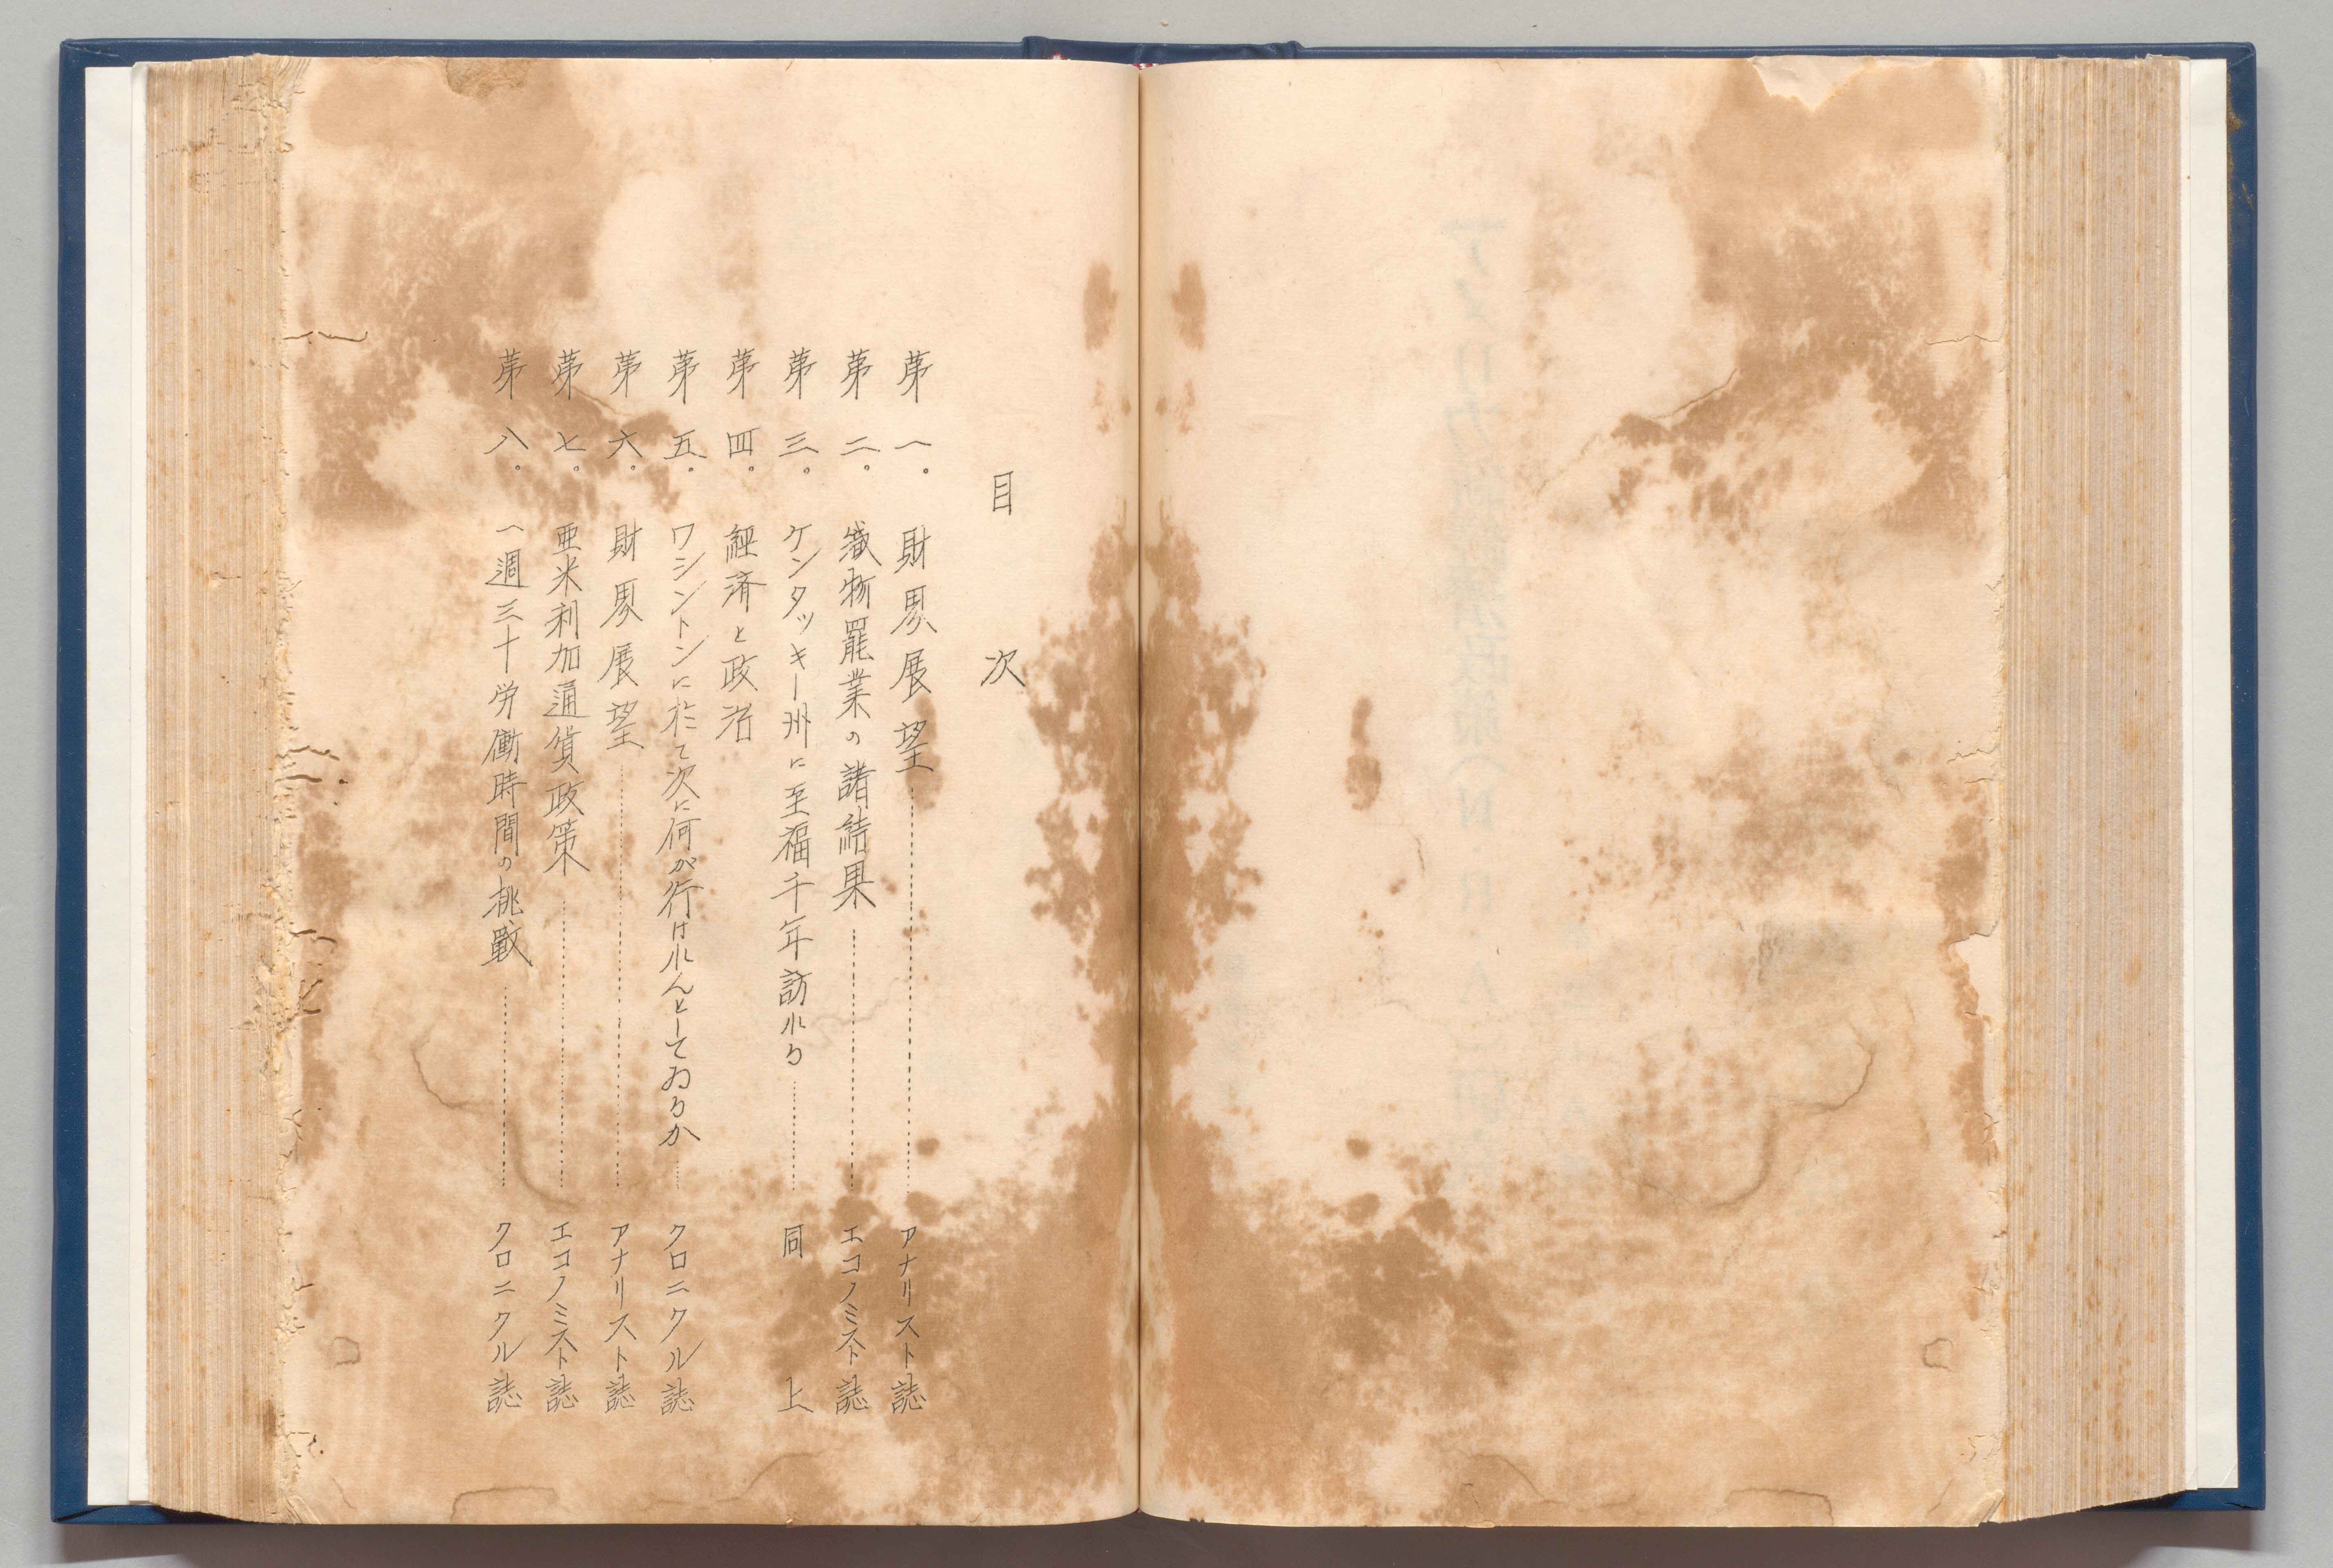 目次
第一。財界展望………アナリスト誌
第二。織物罷業の諸結果………エコノミスト誌
第三。ケンタッキー州に至福千年訪れる………同上
第四。経済と政治
第五。ワシントンに於て次に何が行はれんとしてゐるか……クロニクル誌
第六。財界展望………アナリスト誌
第七。亜米利加通貨政策………エコノミスト誌
第八。一週三十労働時間の挑戦………クロニクル誌